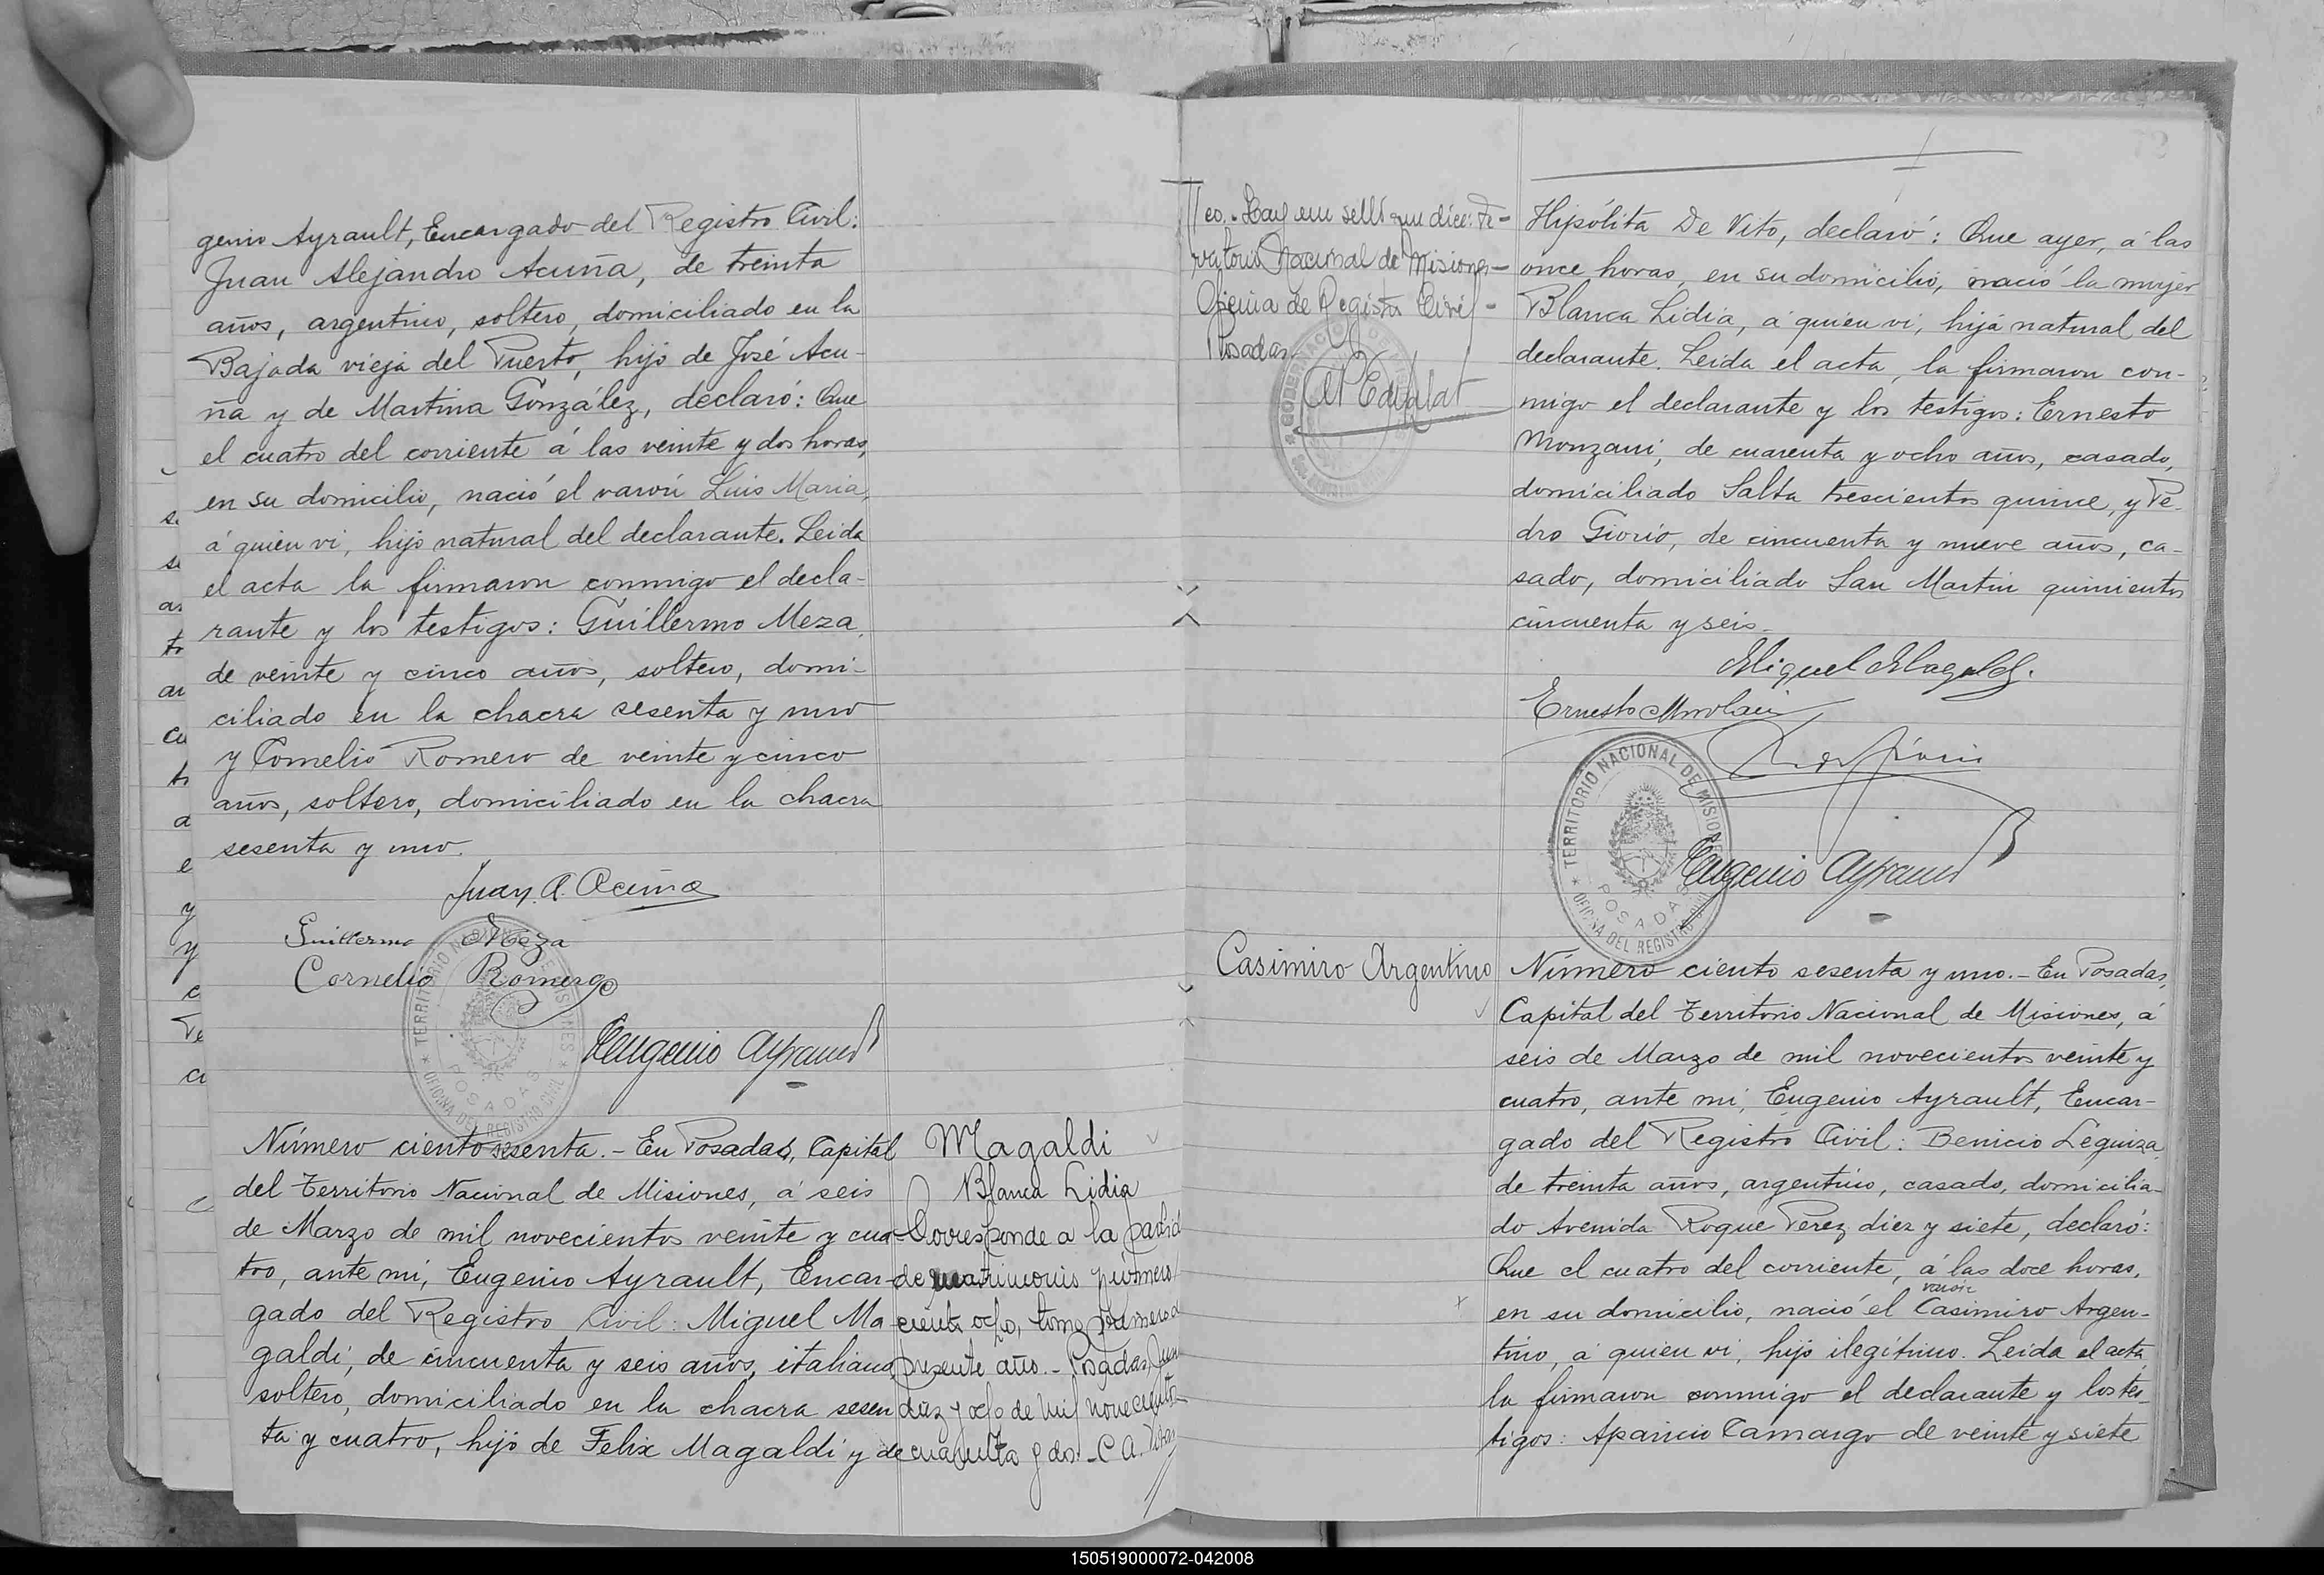 genio Ayrault, Encargado del Registro Civil:
Juan Alejandro Acuña, de treinta
años, argentino, soltero, domiciliado en la
Bajada vieja del Puerto, hijo de José Acu-
ña y de Martina González, declaró: Que
el cuatro del corriente á las veinte y dos horas,
en su domicilio, nació el varón Luis Maria,
á quien vi, hijo natural del declarante. Leida
el acta la firmaron conmigo el decla-
rante y los testigos: Guillermo Meza,
de veinte y cinco años, soltero, domi-
ciliado en la chacra sesenta y uno
y Cornelio Romero de veinte y cinco
años, soltero, domiciliado en la chacra
sesenta y uno.
Juan A. Acuña
Guillermo Meza
Cornelio Romero
TERRITORIO NACIONAL DE MISIONES
POSADAS
OFICINA DEL REGISTRO CIVIL
Eugenio Ayrault
Número ciento sesenta. - En Posadas, Capital
del Territorio Nacional de Misiones, á seis
de Marzo de mil novecientos veinte y cua-
tro, ante mi, Eugenio Ayrault, Encar-
gado del Registro Civil: Miguel Ma-
galdi, de cincuenta y seis años, italiano,
soltero, domiciliado en la chacra sesen
ta y cuatro, hijo de Felix Magaldi y de
Magaldi
Blanca Lidia
Corresponde a la partida
de matrimonio número
ciento ocho, tomo primero
presente año. - Posadas,
diez y ocho de mil novecientos
cuarenta y dos. - C A.
co. - Hay un sello que dice: Te-
rritorio Nacional de Misiones -
Oficina de Registro Civil -
Posadas
Hipólita De Vito, declaró: Que ayer, á las
once horas, en su domicilio, nació la mujer
Blanca Lidia, á quien vi, hija natural del
declarante. Leida el acta, la firmaron con-
migo el declarante y los testigos: Ernesto
Monzani, de cuarenta y ocho años, casado,
domiciliado Salta trescientos quince, y Pe-
dro Giorio, de cincuenta y nueve años, ca-
sado, domiciliado San Martin quinientos
cincuenta y seis.
Miguel Magaldi.
Ernesto
TERRITORIO NACIONAL DE MISIONES
POSADAS
OFICINA DEL REGISTRO CIVIL
Eugenio Ayrault
Casimiro Argentino
Número ciento sesenta y uno. - En Posadas,
Capital del Territorio Nacional de Misiones, á
seis de Marzo de mil novecientos veinte y
cuatro, ante mi, Eugenio Ayrault, Encar-
gado del Registro Civil: Benicio Leguiza,
de treinta años, argentino, casado, domicilia-
do Avenida Roque Perez diez y siete, declaró:
Que el cuatro del corriente, á las doce horas,
varón
en su domicilio, nació el Casimiro Argen-
tino, á quien vi, hijo ilegítimo. Leida el acta,
la firmaron conmigo el declarante y los tes-
tigos: Aparicio Camargo de veinte y siete
150519000072-042008